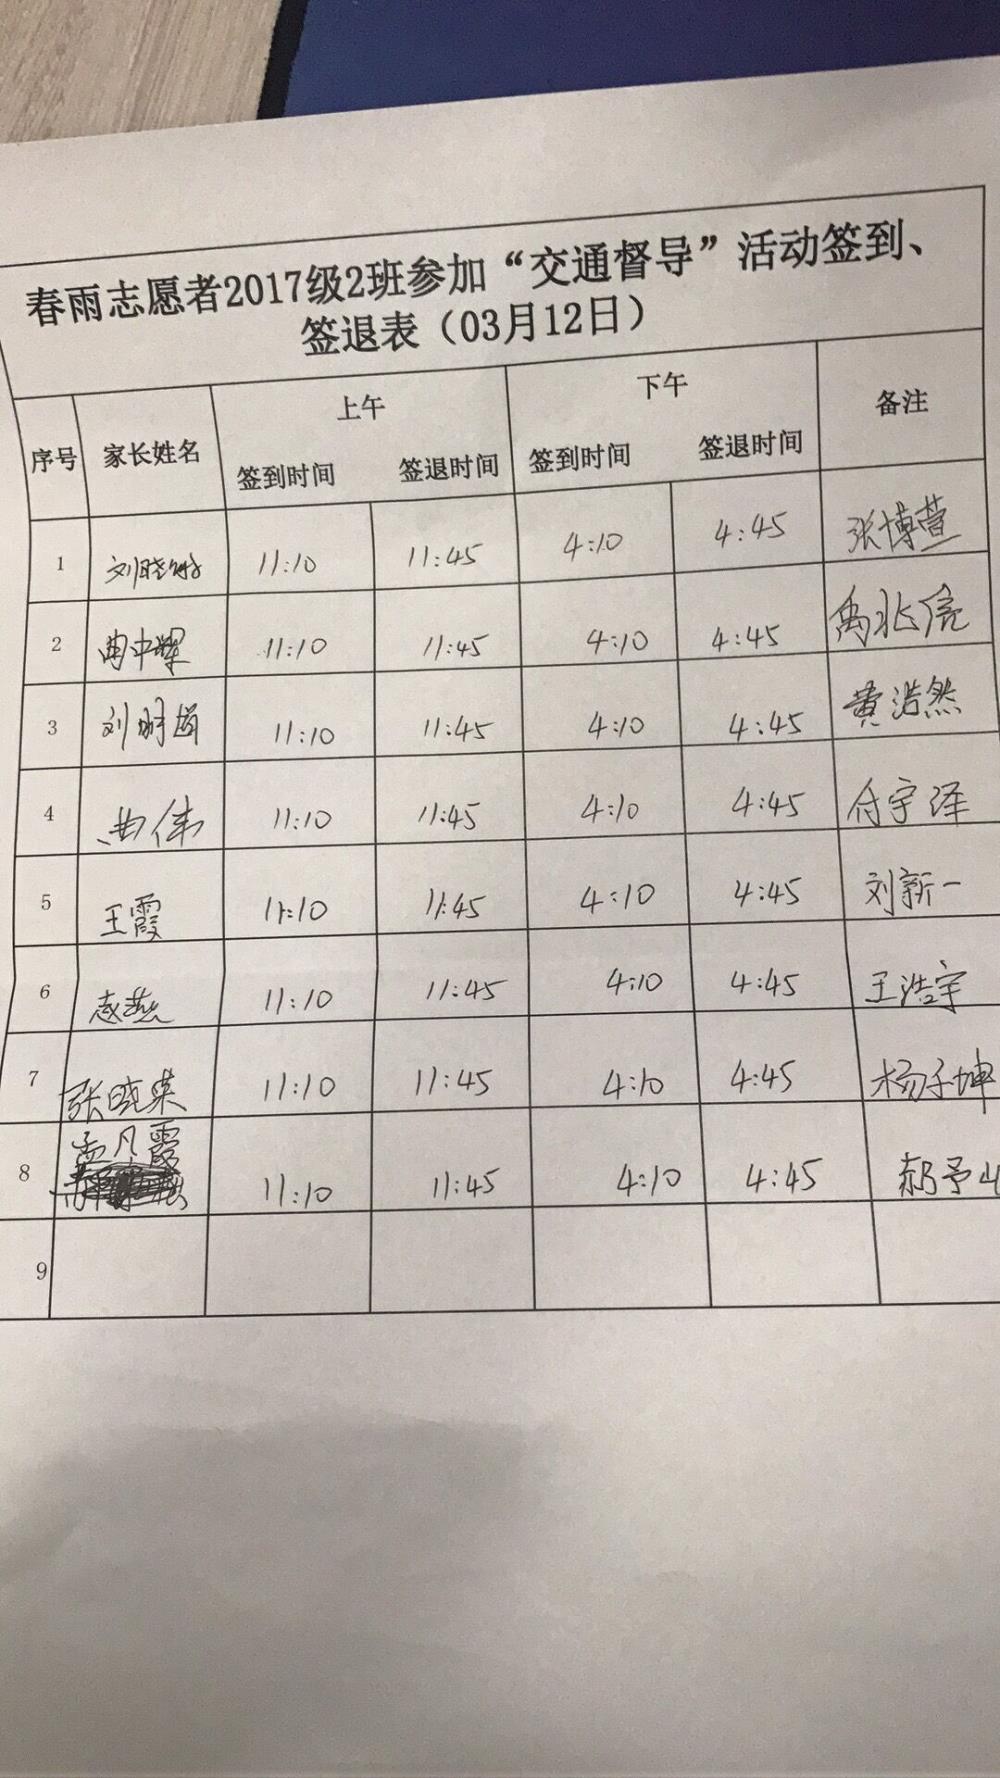 春雨志愿者2017级2班参加“交通督导”活动签到、
签退表（03月12日）
序号 家长姓名 上午 下午 备注
签到时间 签退时间 签到时间 签退时间
1 刘晓 11:10 11:45 4:10 4:45 张博萱
2 曲中 11:10 11:45 4:10 4:45 禹兆
3 刘明 11:10 11:45 4:10 4:45 黄浩然
4 曲伟 11:10 11:45 4:10 4:45 付宇泽
5 王霞 11:10 11:45 4:10 4:45 刘新一
6 赵燕 11:10 11:45 4:10 4:45 王浩宇
7 张晓英 11:10 11:45 4:10 4:45 杨子坤
8 孟凡霞 11:10 11:45 4:10 4:45 郝予
9